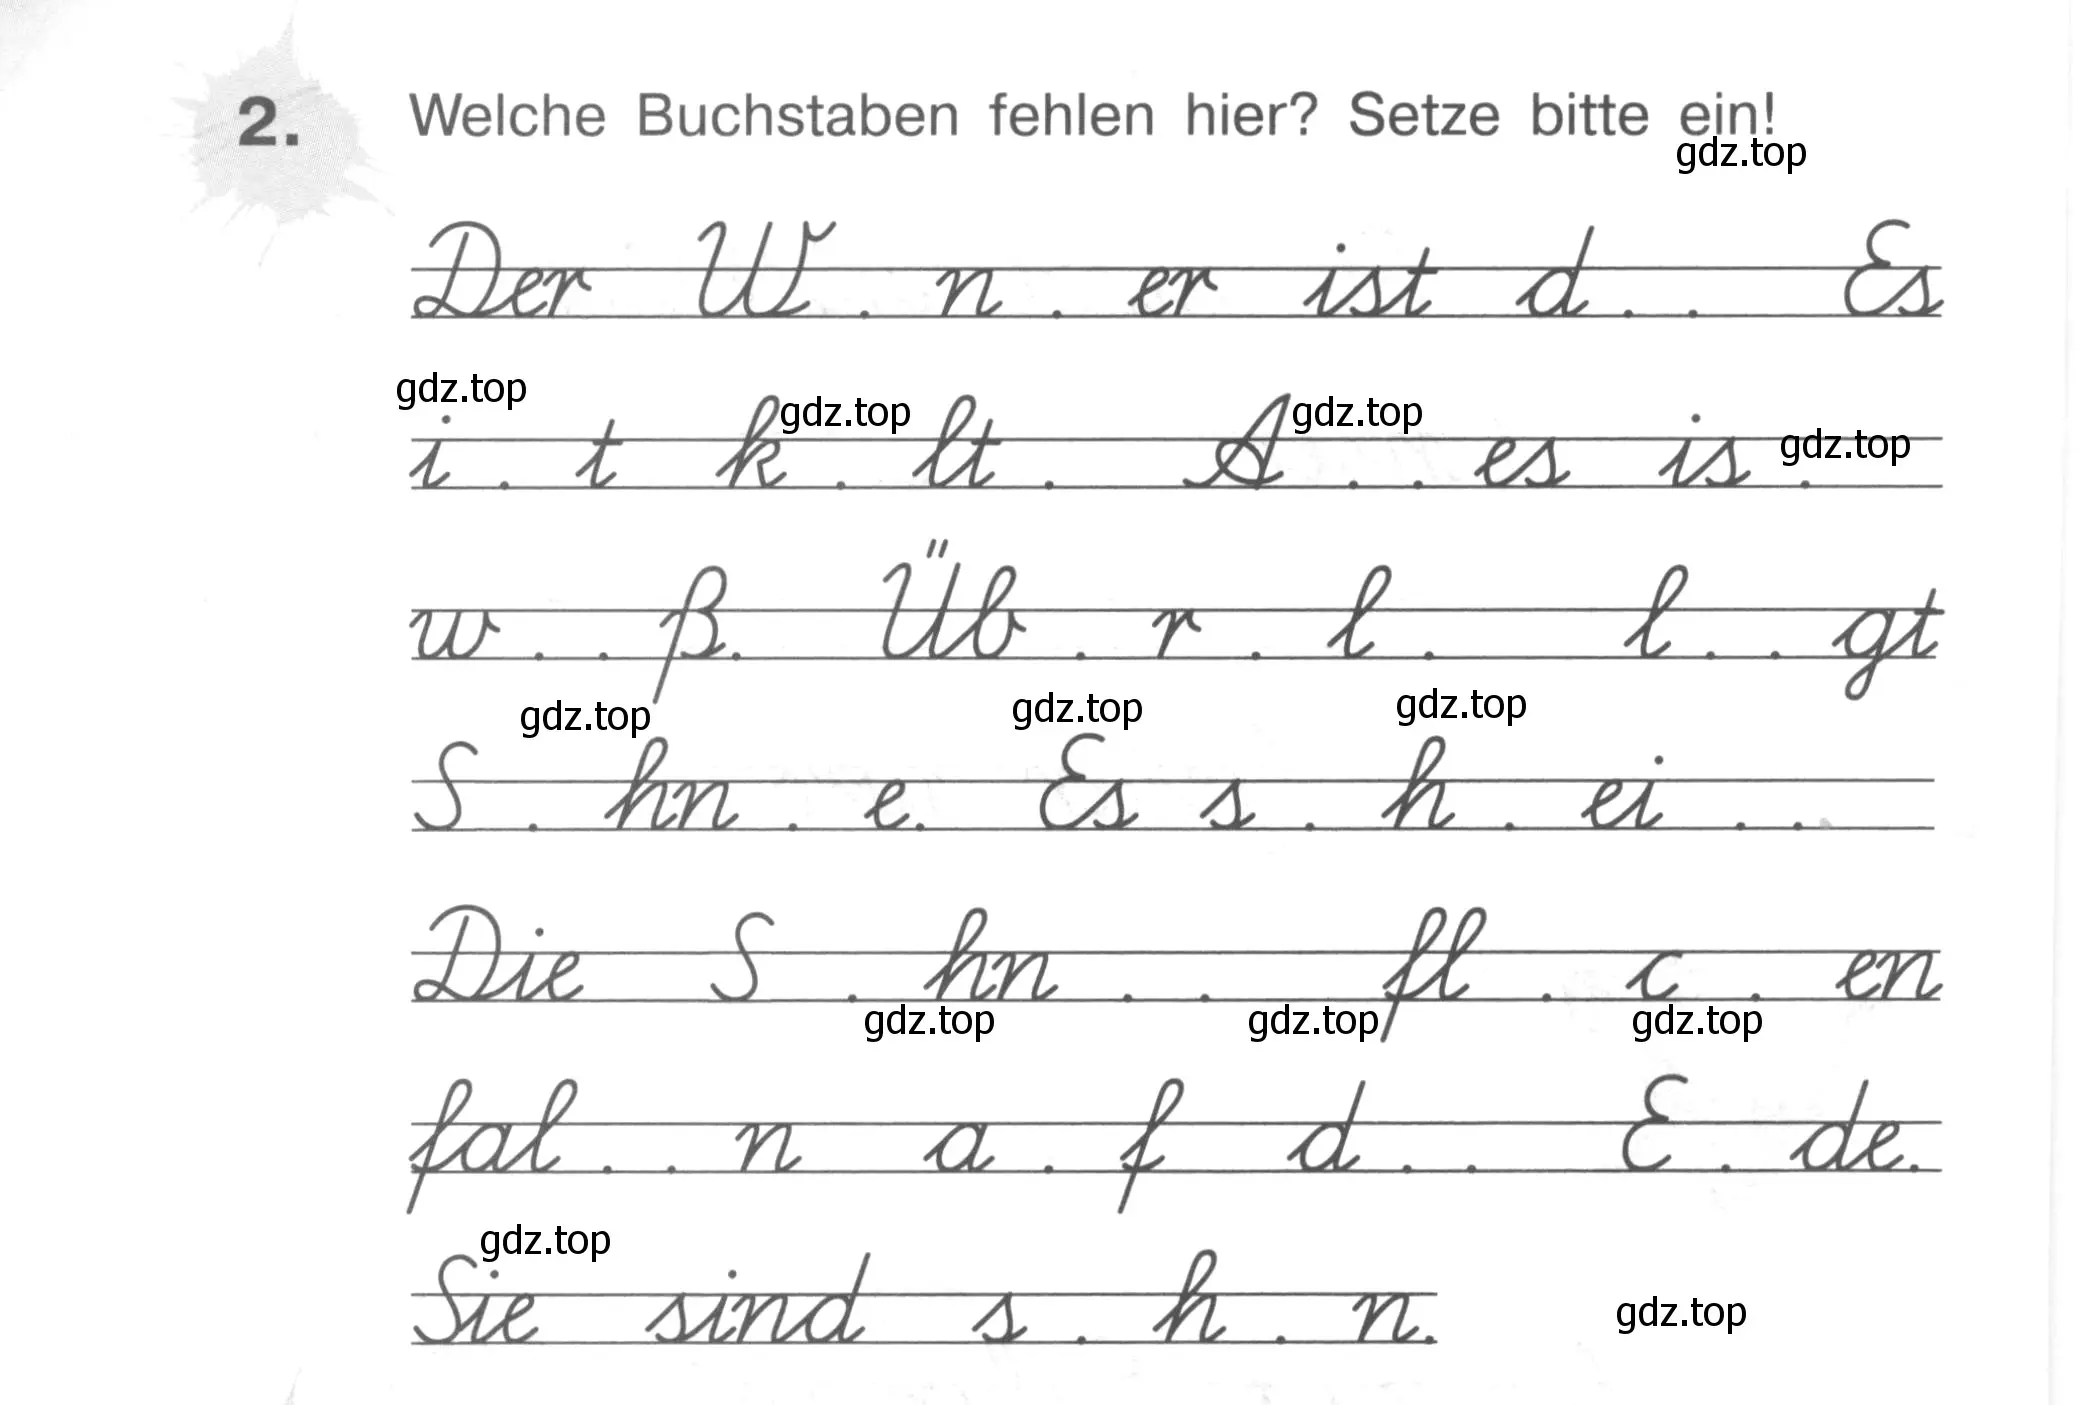 2. Welche Buchstaben fehlen hier? Setze bitte ein!
gdz.top
Der W . n . er ist d . . Es
gdz.top gdz.top gdz.top gdz.top
i . t k . lt . A . . es is .
w . . ß. Üb . r . l . l . . gt
gdz.top gdz.top gdz.top
S . hn . e. Es s . h . ei . .
Die S . hn . . fl . c . en
gdz.top gdz.top gdz.top
fal . . n a . f d . . E . de.
gdz.top
Sie sind s . h . n.
gdz.top